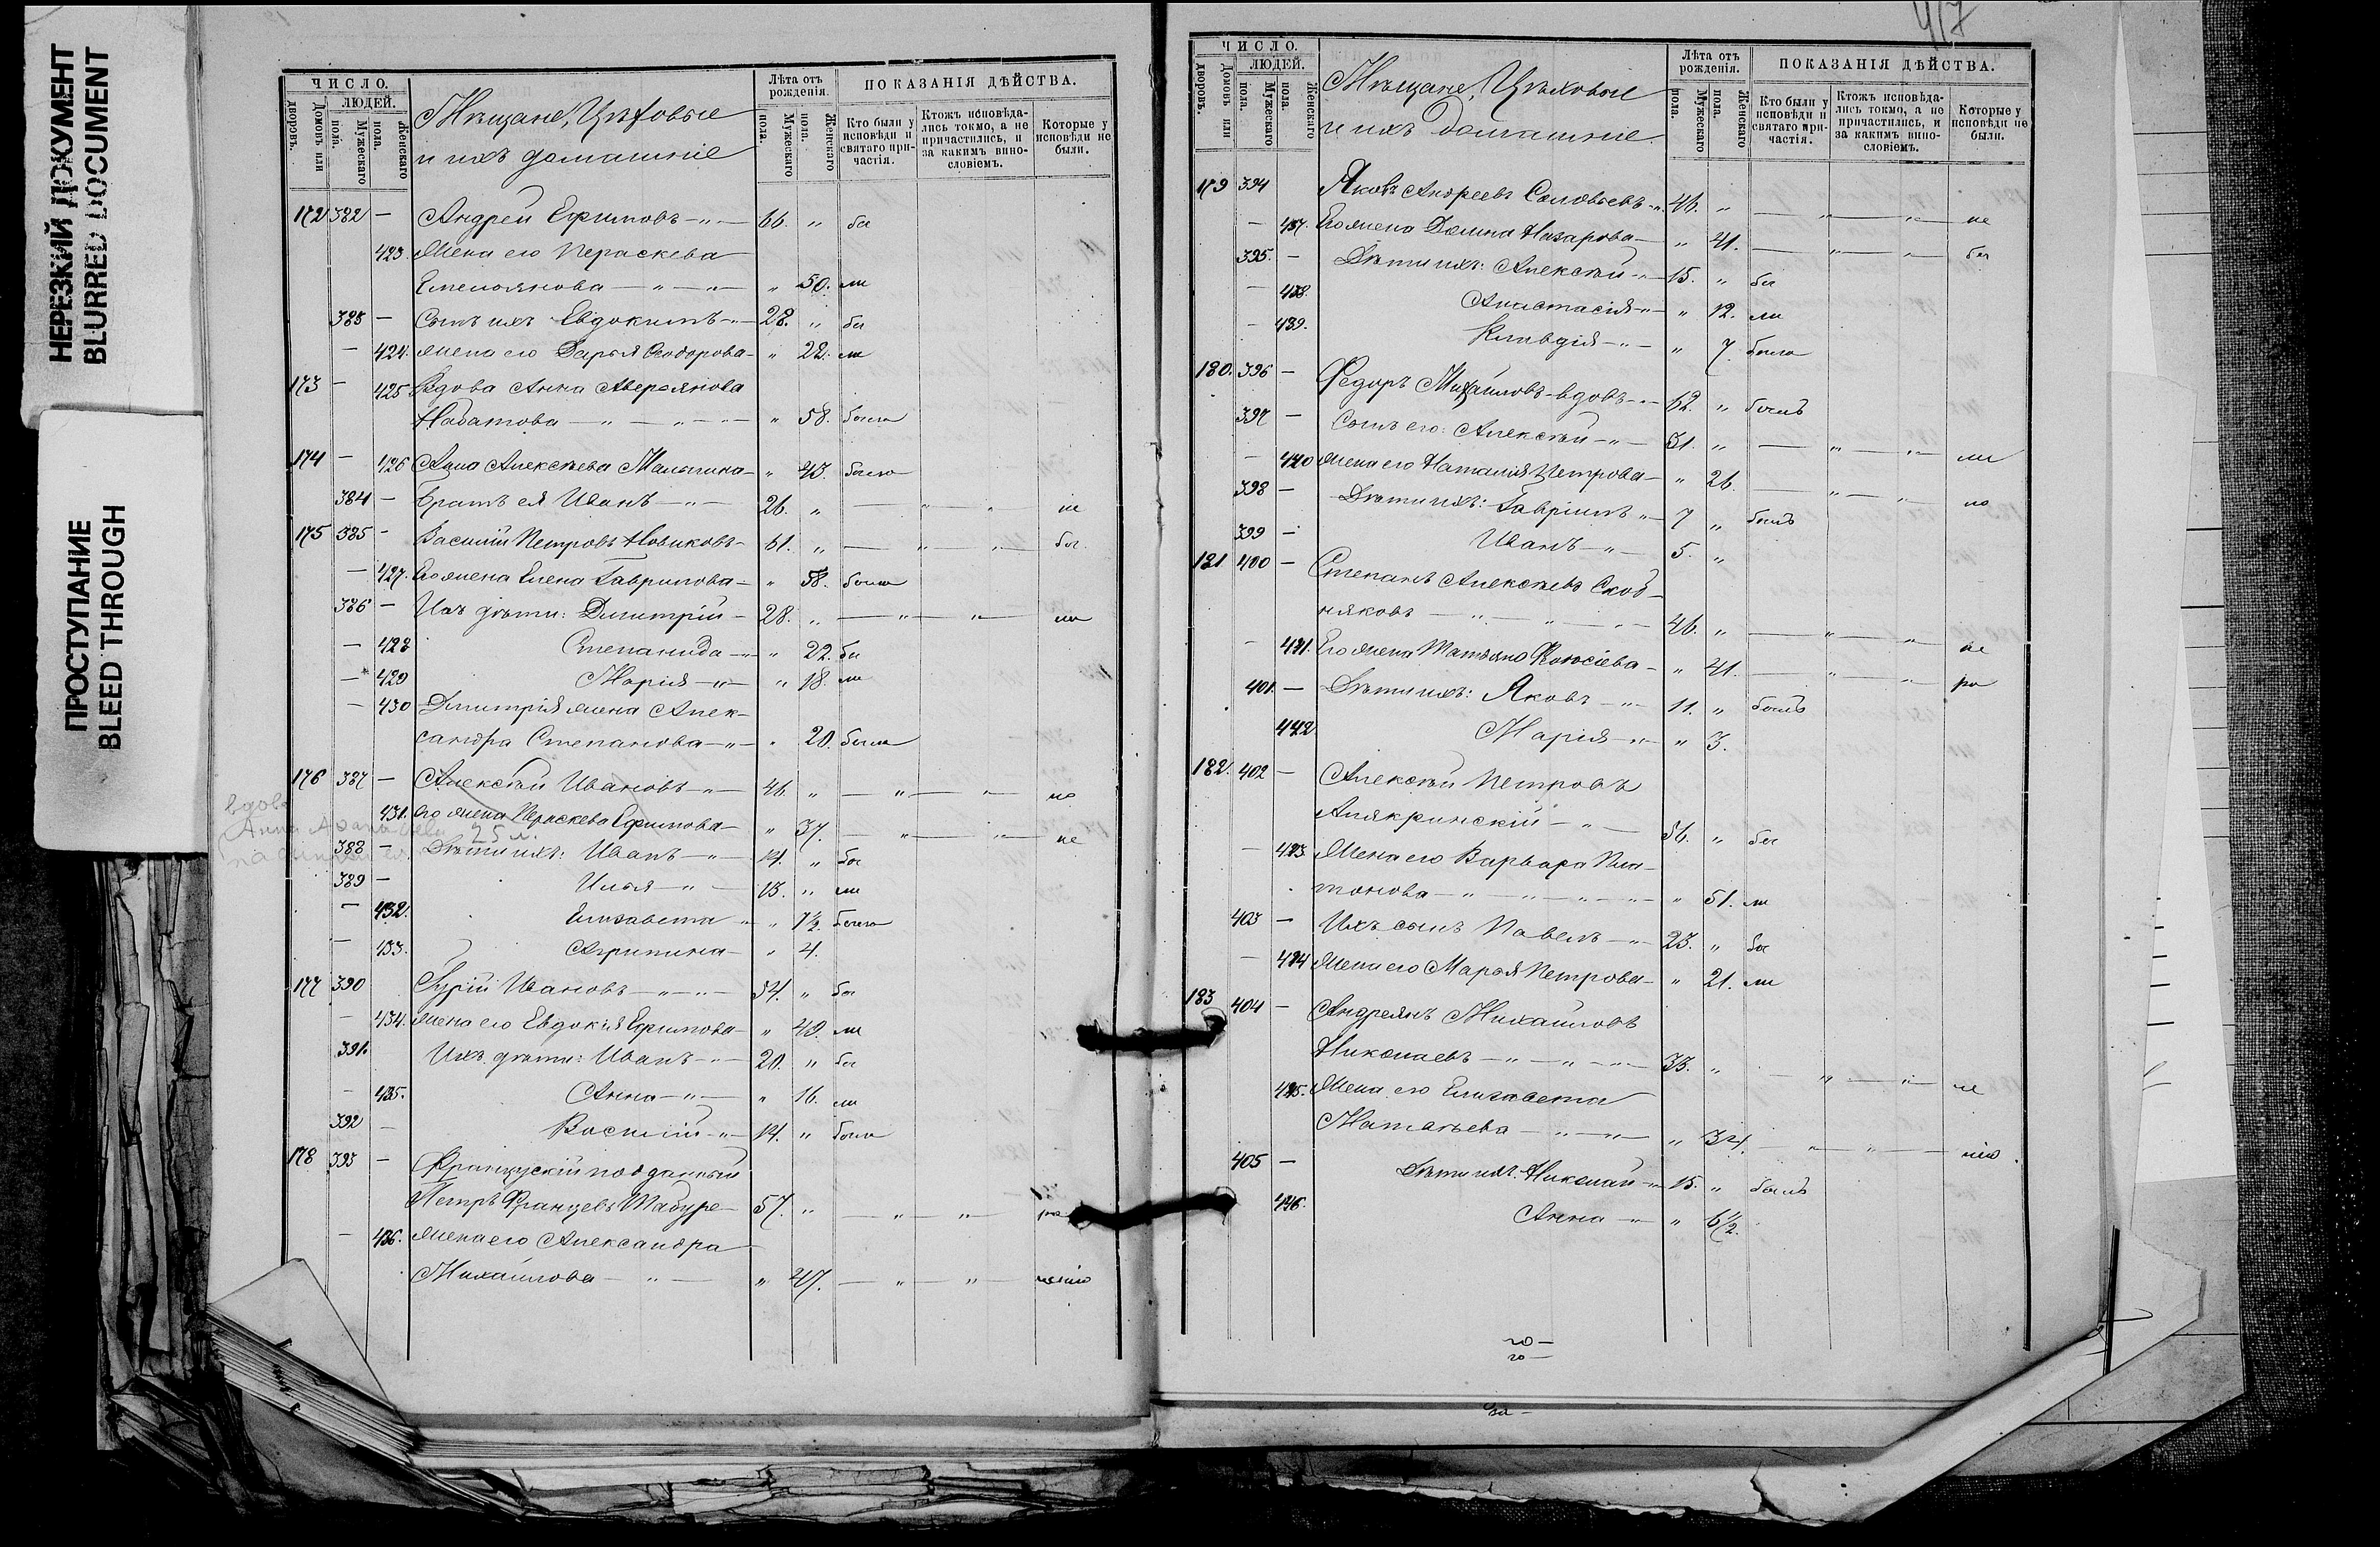 НЕРЕЗКИЙ ДОКУМЕНТ
BLURRED DOCUMENT
ПРОСТУПАНИЕ
BLEED THROUGH
ЧИСЛО.
Домовъ или дворовъ.
ЛЮДЕЙ.
Мужескаго пола.
Женскаго пола.
Мѣщане, Цѣховые
и ихъ домашніе
Лѣта отъ рожденія.
Мужескаго пола.
Женскаго пола.
ПОКАЗАНІЯ ДѢЙСТВА.
Кто были у исповѣди и святаго причастія.
Ктожъ исповѣдались токмо, а не причастились, и за какимъ винословіемъ.
Которые у исповѣди не были.
172 382 — Андрей Ефимовъ — " — 66. " бы
423. Жена его Пераскева
Емельянова — " — " — " 50. ли
383 — Сынъ ихъ Евдокимъ — " — 28. " бы
— 424. Жена его Дарья Ѳеодорова — " 22. ли
173 — 425 Вдова Анна Аверьянова
Набатова — " — " — " — " 58. была
174 — 426 Анна Алексѣева Малыгина — " 45. была
384 — Братъ ея Иванъ — " — 26. " — " — " — не
175 385 — Василій Петровъ Новиковъ — 61. " — " — " — бы
— 427. Его жена Елена Гаврилова — " 58. была
386 — Ихъ дѣти: Дмитрій — 28. " — " — " — ли
— 428 Степанида — " — " 22. бы
— 429 Марія — " — " 18. ли
— 430 Дмитрія жена Алек-
сандра Степанова — " — " 20. была
176 387 — Алексѣй Ивановъ — " — 46. " — " — " — не
431. его жена Пераскева Ефимова — " 37. — " — " — не
вдова
Анна
25 л.
388 — Дѣти ихъ: Иванъ — " — 14. " бы
389 — Илья — " — 13. " ли
— 432. Елизавета — " " 7½. была
— 433. Агрипина — " 4.
177 390 Гурій Ивановъ — " — " — 54. " бы
— 434. Жена его Евдокія Ефимова — " 49. ли
391. Ихъ дѣти: Иванъ — " — 20. " бы
— 435. Анна — " — " 16. ли
392 — Василій — " — 14. " были
178 393 — Французскій подданный
Петръ Францевъ — 57. " — " — " —
— 436. Жена его Александра
Михайлова — " — " 47. — " — " —
417
ЧИСЛО.
Домовъ или дворовъ.
ЛЮДЕЙ.
Мужескаго пола.
Женскаго пола.
Мѣщане, Цѣховые
и ихъ домашніе.
Лѣта отъ рожденія.
Мужескаго пола.
Женскаго пола.
ПОКАЗАНІЯ ДѢЙСТВА.
Кто были у исповѣди и святаго причастія.
Ктожъ исповѣдались токмо, а не причастились, и за какимъ винословіемъ.
Которые у исповѣди не были.
179 394 Яковъ Андреевъ Соловьевъ — " 46. " — " — " — не
— 437. Его жена Домна Назарова — " 41. — " — " — бы
395. — Дѣти ихъ: Алексѣй — " — 15. " бы
— 438. Анастасія — " — " 12. ли
— 439. Клавдія — " — " 7. была
180. 396 — Федоръ Михайловъ — вдовъ — " — 62. " былъ
397 — Сынъ его: Алексѣй — " — 31. " — " — " — ли
— 440 Жена его Наталія Петрова — " 26. — " — " — но
398 — Дѣти ихъ: Гавріилъ " — 7 " былъ
399 — Иванъ — " — 5. "
181 400 — Степанъ Алексѣевъ Скоб-
няковъ — " — " — " — 46. " — " — " — не
— 441. Его жена Татьяна — " 41. — " — " —
401. — Дѣти ихъ: Яковъ — " — 11. " былъ
442 Марія — " — " 3.
182. 402 — Алексѣй Петровъ
Алякринскій — " — 56. " бы
— 443. Жена его Варвара Пла-
тонова — " — " — " — " — " 51. ли
403 — Ихъ сынъ Павелъ — " — 23. " бы
— 444 Жена его Марья Петрова — " 21. ли
183 404 — Андреянъ Михайловъ
Николаевъ — " — " — " — 33. " — " — " — не
445. Жена его Елизавета
Матвѣева — " — " — " 34. — " — " —
405 — Дѣти ихъ: Николай — " — 15. " былъ
446. Анна — " — " 6½.